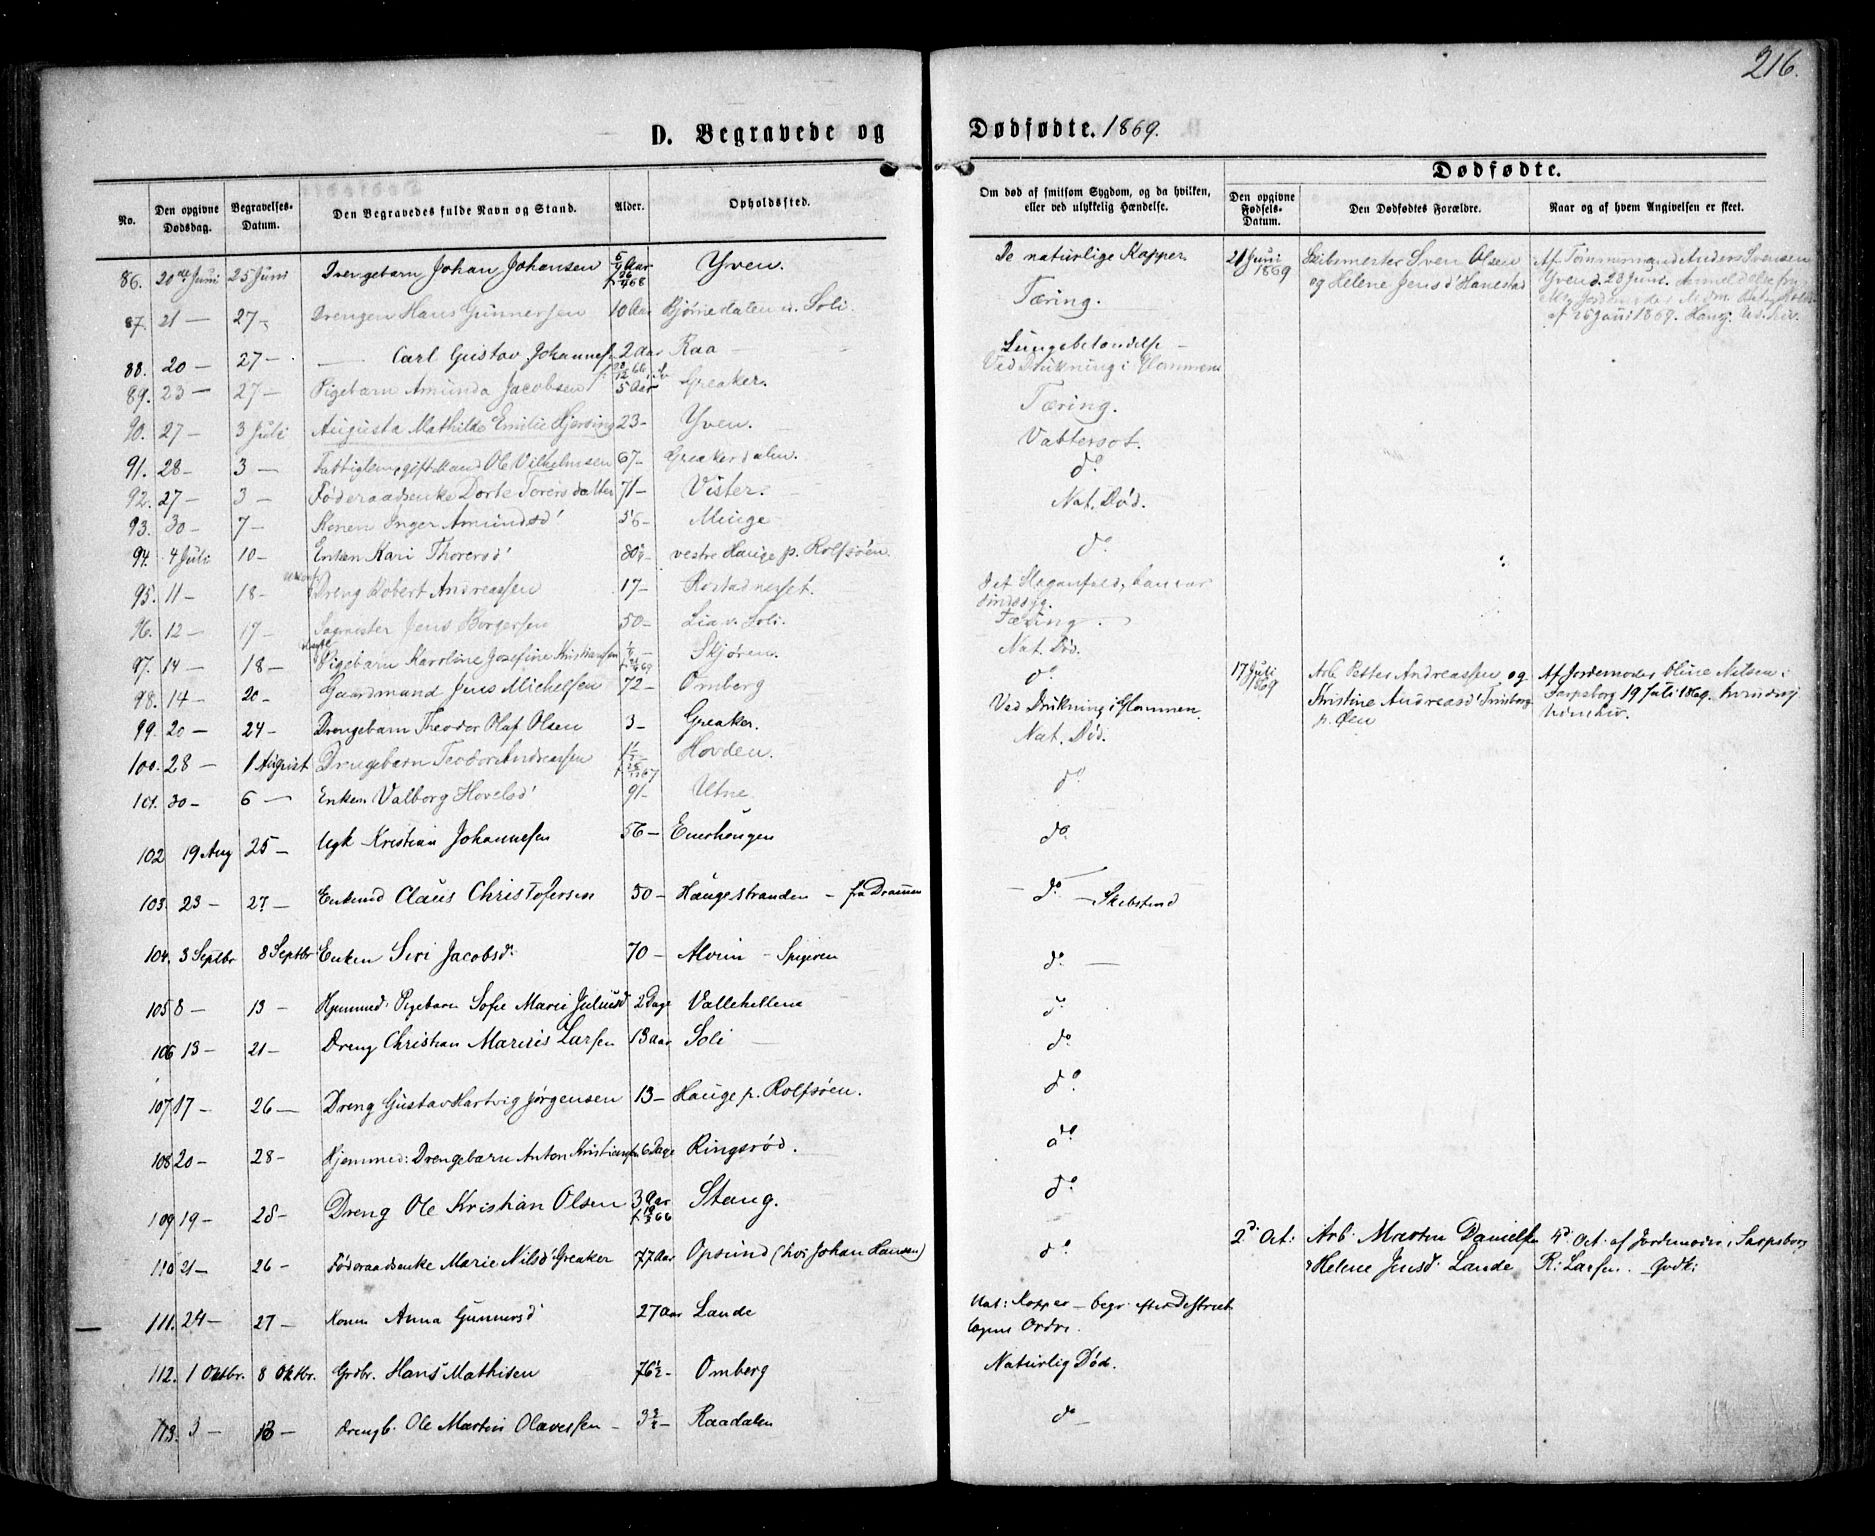 216.
D. Begravede og Dødfødte. 1869.
Dødfødte.
No. Den opgivne Dødsdag. Begravelses-Datum. Den Begravedes fulde Navn og Stand. Alder. Opholdssted. Om død af smitsom Sygdom, og da hvilken, eller ved ulykkelig Hændelse. Den opgivne Fødsels-Datum. Den Dødfødtes Forældre. Naar og af hvem Angivelsen er skeet.
86. 20de Juni 25 Juni Drengebarn Johan Johansen Yven. De naturlige Kopper 21 Juni 1869 Sven Olsen og Helene Jensd' Hanestad Af Tømmermand Anders Svensen Yven d. 23 Juni.
87. 21 — 27 — Drengen Hans Gunnersen 10 Aar Bjørnedalen u. Soli. Tæring.
88. 20 — 27 — — Carl Gustav Johannesen 2 Aar Raa — Lungebetændelse —
89. 23 — 27 — Pigebarn Amunda Jacobsen 5 Aar Greaker. Ved Drukning i Glommen
90. 27 — 3 Juli Augusta Mathilde Emilie Hjersing 23 — Yven. Tæring.
91. 28 — 3 — Ole Vilhelmsen 67 — Greakerdalen. Vattersot.
92. 27 — 3 — Føderaadsenke Dorte Torersdatter 71 — Vister. do
93. 30 — 7 — Konen Inger Amundsd' 56 — Minge — Nat. Død.
94. 4 Juli 10 — Enken Kari Thorersd' 80 — vestre Hauge p. Rolfsøen. do
95. 11 — 18 — Dreng Robert Andreassen 17 — Rostadneset. Det
96. 12 — 17 — Sagmester Jens Borgersen 50 — Lia v. Soli. Tæring.
97. 14 — 18 — Pigebarn Karoline Josefine Kristiansen Skjøren. Nat. Død.
98. 14 — 20 — Gaardmand Jens Michelsen 72 — Omberg do 17 Juli 1869 Arb. Petter Andreassen og Kristine Andreasd' p. Øen Af Jordemoder Oline Nilsen i Sarpsborg 19 Juli 1869.
99. 20 — 24 — Drengebarn Theodor Olaf Olsen 3 — Greaker. Ved Drukning i Glommen.
100. 28 — 1 August Drengebarn Teodor Andreassen Hovden. Nat. Død.
101. 30 — 6 — Enken Valborg Hovelsd' 91 — Utne do
102 19 Aug 25 — Ugk Kristian Johannesen 56 — Enerhougen do
103. 23 — 27 — Enkemd Claus Christofersen 50 — Haugestranden — fra Drammen — do —
104. 3 Septbr 8 Septbr Enken Siri Jacobsd: 70 — Alvim — Spigeren do. —
105 8 — 13 — Hjemmed: Pigebarn Sofie Marie Juliusd 2 Dage Vallehellene do
106 13 — 21 — Dreng Christian Marius Larsen 13 Aar Soli — do
107 17 — 26 — Dreng Gustav Hartvig Jørgensen 13 — Hauge p. Rolfsøen. do.
108 20 — 28 — Hjemmed: Drengebarn Anton Kristiansen 6 Dage Ringsrød. do
109 19 — 28 — Dreng Ole Kristian Olsen 3 Aar Stang. do
110 21 — 26 — Føderaadsenke Marie Nilsd' Greaker 77 Aar Opsund (hos Johan Hansen) do 2d Oct: Arb. Morten Danielsen & Helene Jensd: Lande 4d Oct. af Jordemoder i Sarpsborg R: Larsen. Godk:
111. 24 — 27 — Konen Anna Gunnersd' 27 Aar Lande Nat: Kopper — begr. efter Destrict lægens Ordre.
112. 1 Oktbr. 8 Oktbr. Grdbr. Hans Mathisen 76½ — Omberg Naturlig Død.
113. 3 — 13 — Drengb. Ole Martin Olavessen — Raadalen do —